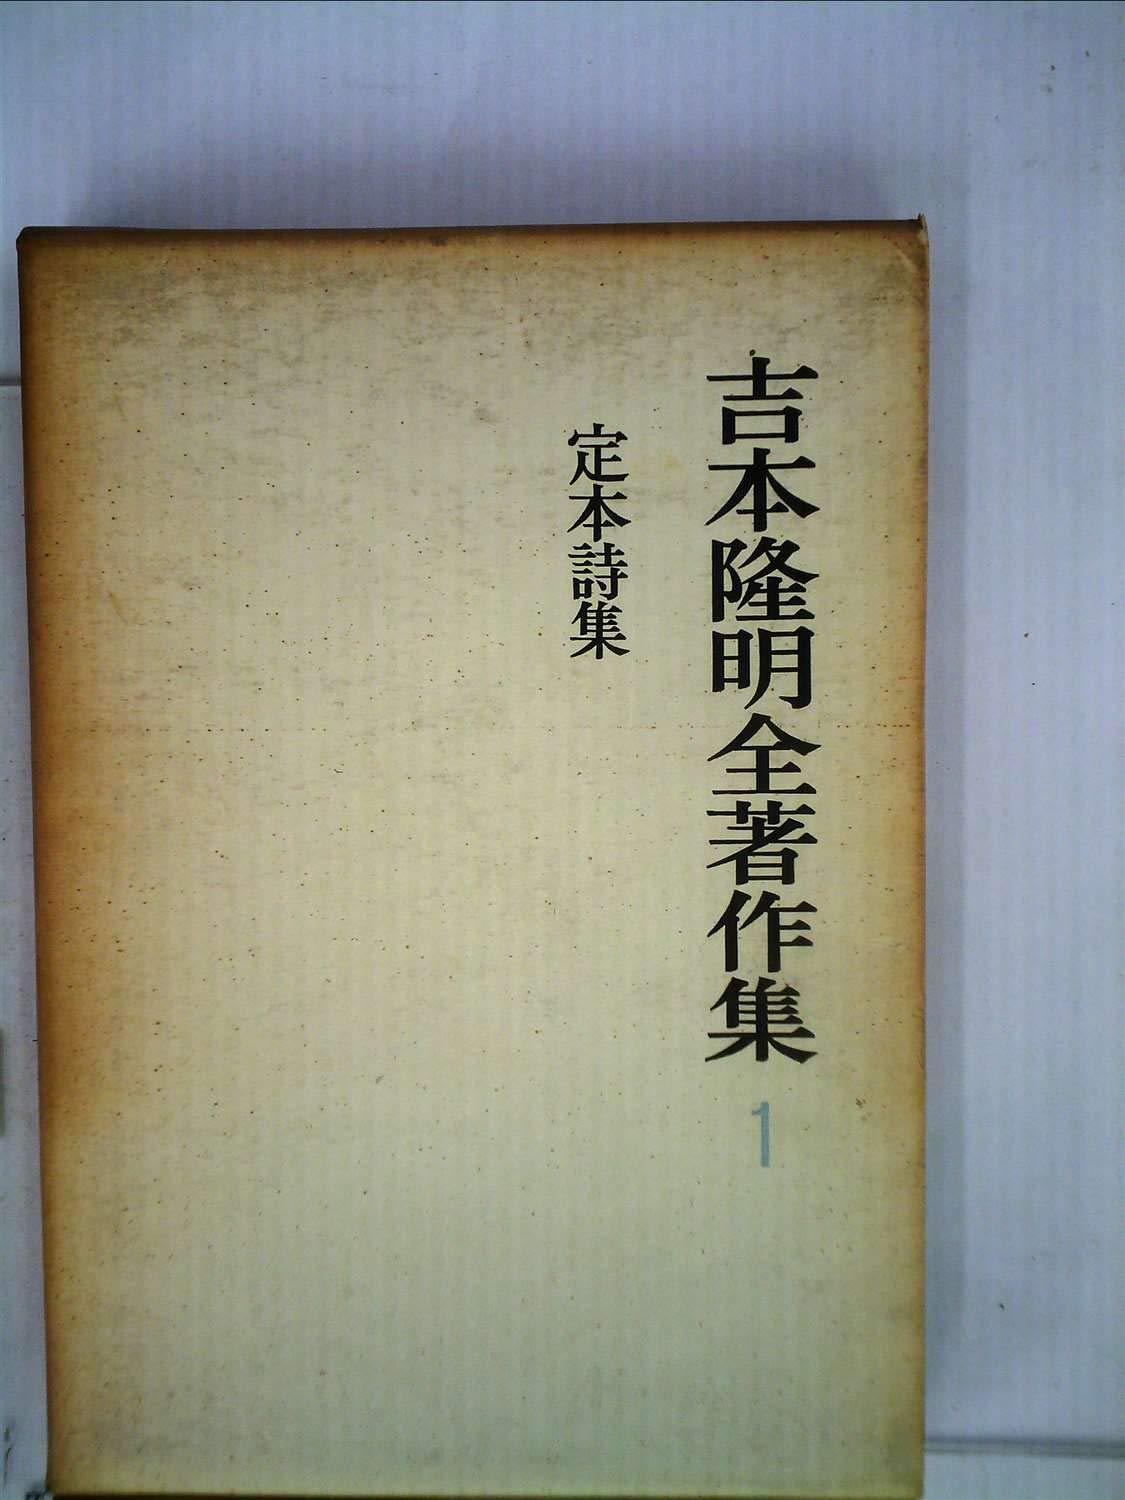 吉本隆明全著作集 1
定本詩集